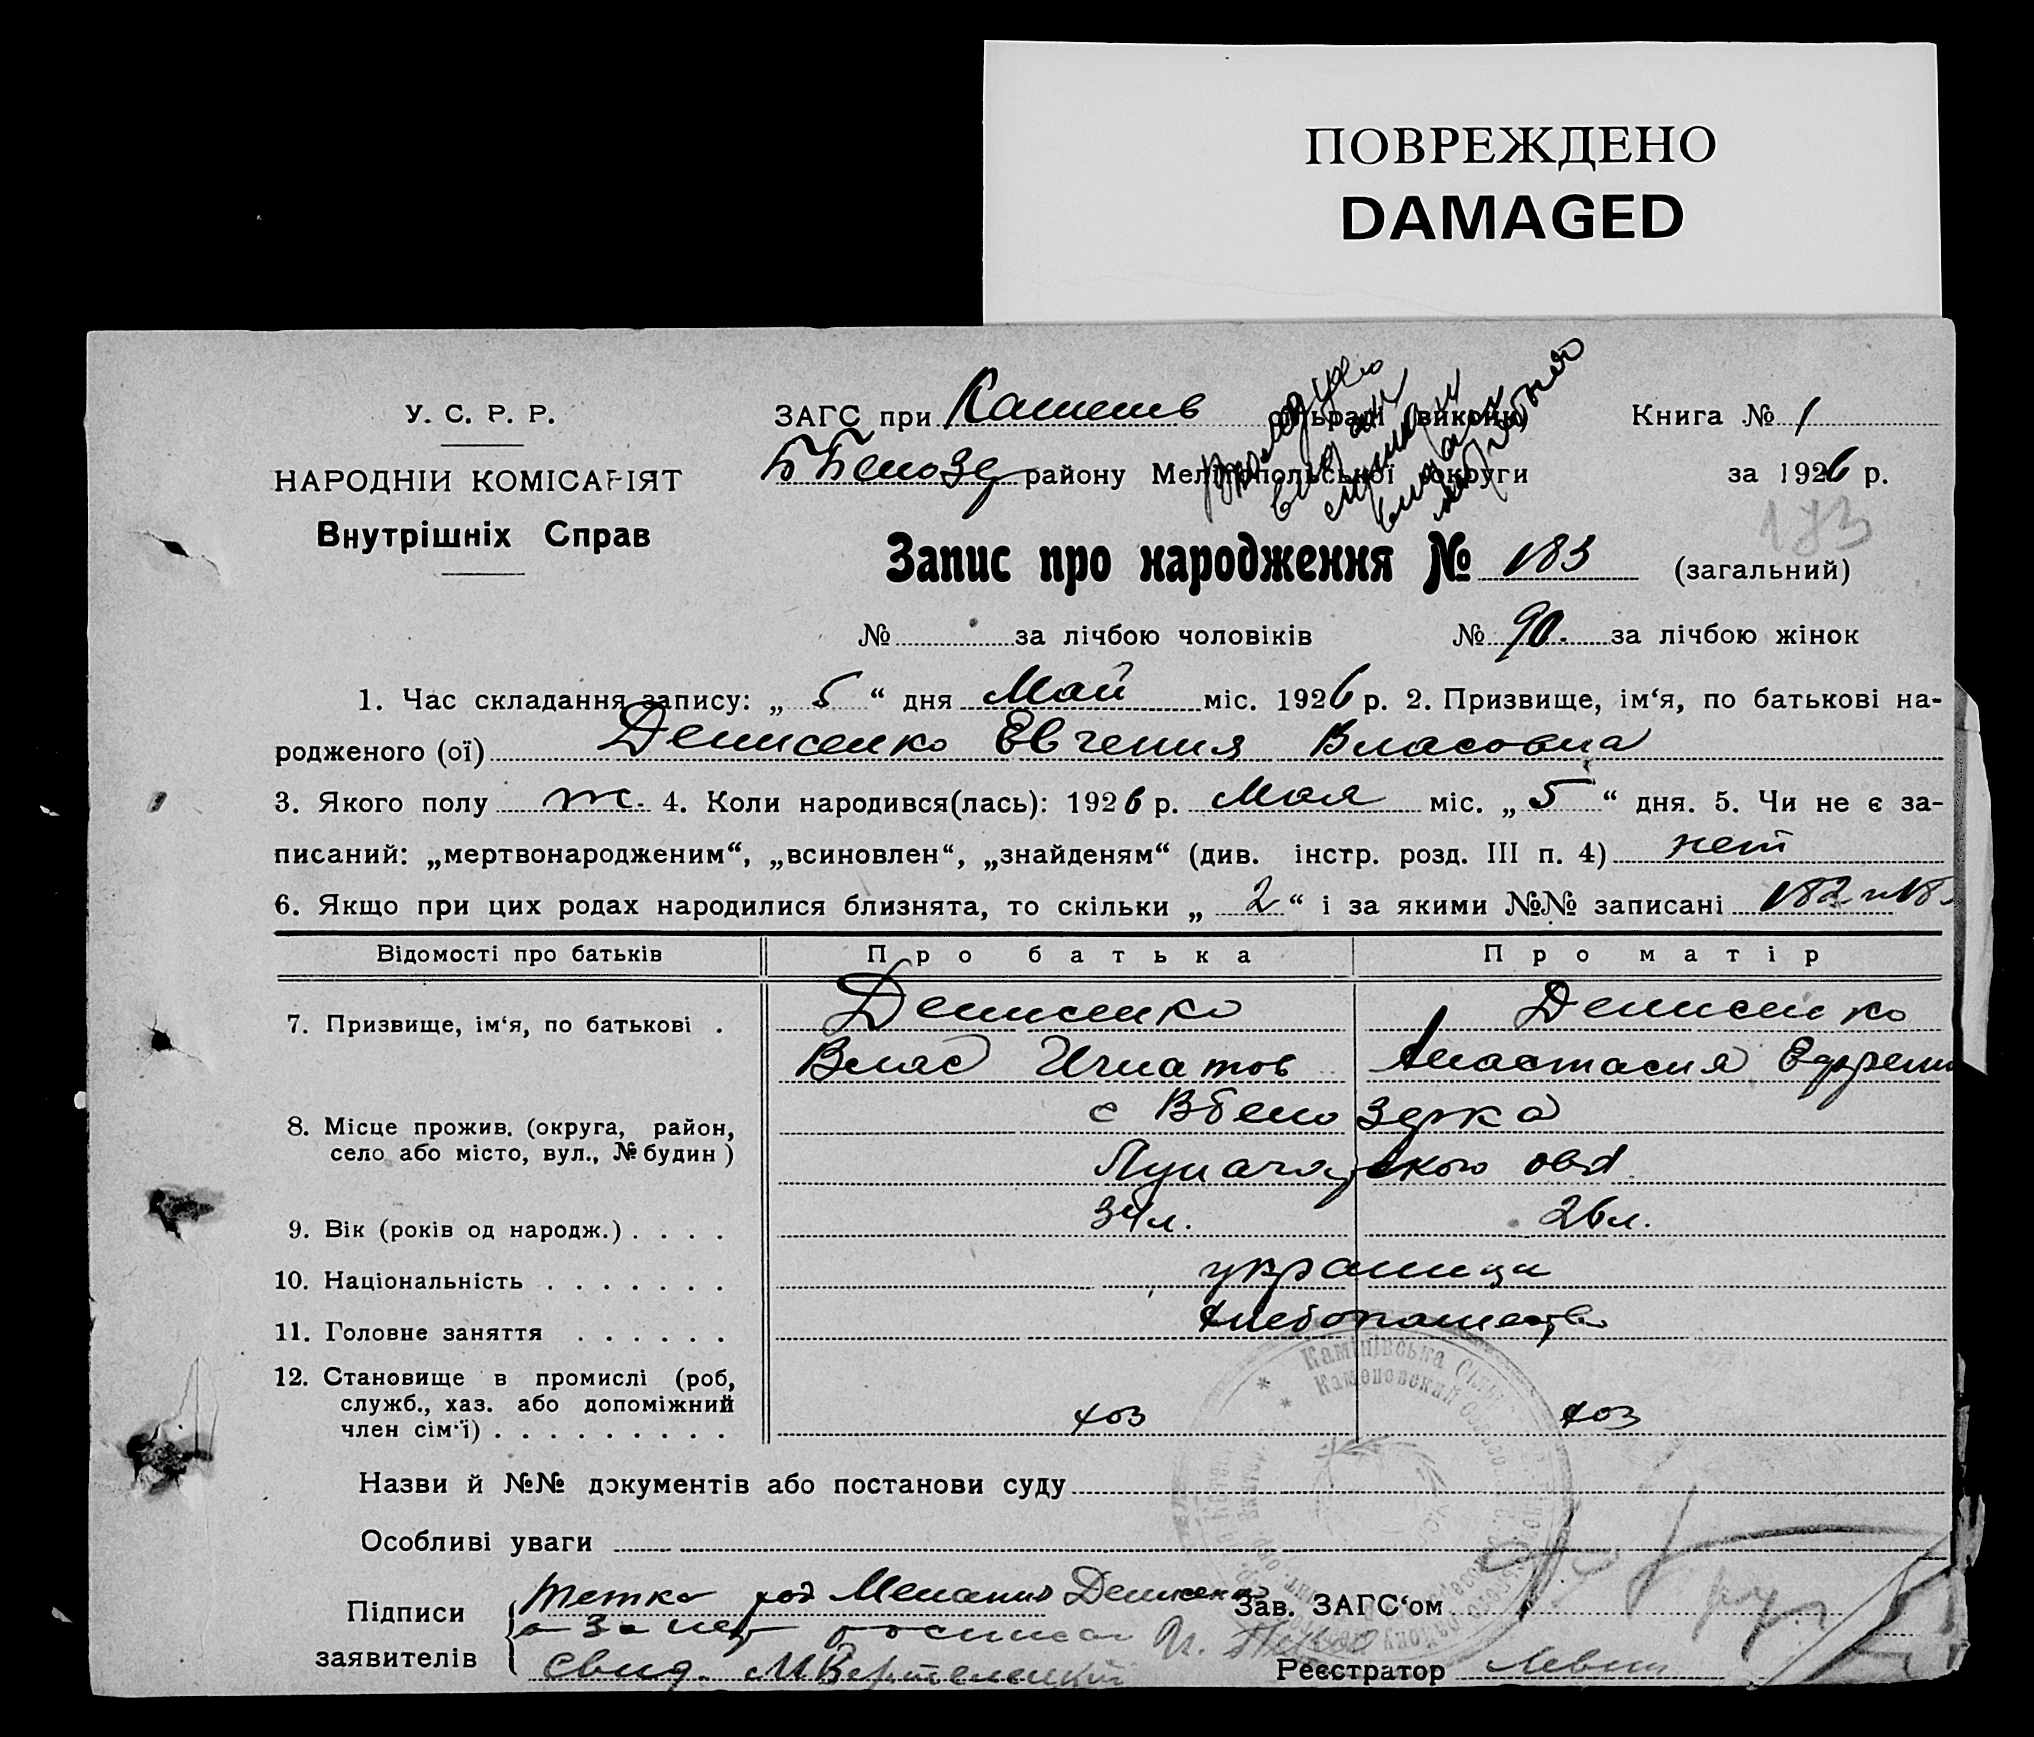 ПОВРЕЖДЕНО
DAMAGED
У. С. Р. Р.
НАРОДНІЙ КОМІСАРІЯТ
Внутрішніх Справ
ЗАГС при Каменев сільраді викому Книга № 1
району Мелітопольської округи за 1926 р.
183
Запис про народження № 183 (загальний)
№ за лічбою чоловіків № 90. за лічбою жінок
1. Час складання запису: „ 5 “ дня Май міс. 1926 р. 2. Призвище, ім‘я, по батькові на-
родженого (ої) Денисенко Евгения Власовна
3. Якого полу ж. 4. Коли народився(лась): 1926 р. Мая міс. „ 5 “ дня. 5. Чи не є за-
писаний: „мертвонародженим“, „всиновлен“, „знайденям“ (див. інстр. розд. III п. 4) нет
6. Якщо при цих родах народилися близнята, то скільки „ 2 “ і за якими №№ записані 182 и 18
Відомості про батьків Про батька Про матір
7. Призвище, ім‘я, по батькові . Денисенко Денисенко
Влас Игнатов Анастасия Ефрем
8. Місце прожив. (округа, район,
село або місто, вул., № будин) с Вбелозерка
овд
9. Вік (років од народж.) . . . . 34 л. 26 л.
10. Національність . . . . . . . украинцы
11. Головне заняття . . . . . . хлебопашество
12. Становище в промислі (роб,
служб., хаз. або допоміжний
член сім‘ї) . . . . . . . . . хоз хоз
Камінівська
Каменовский
Назви й №№ документів або постанови суду
Особливі уваги
Підписи
заявителів
тетка Мелания Денисенко
за нер
свид. М
Зав. ЗАГС‘ом
Реєстратор